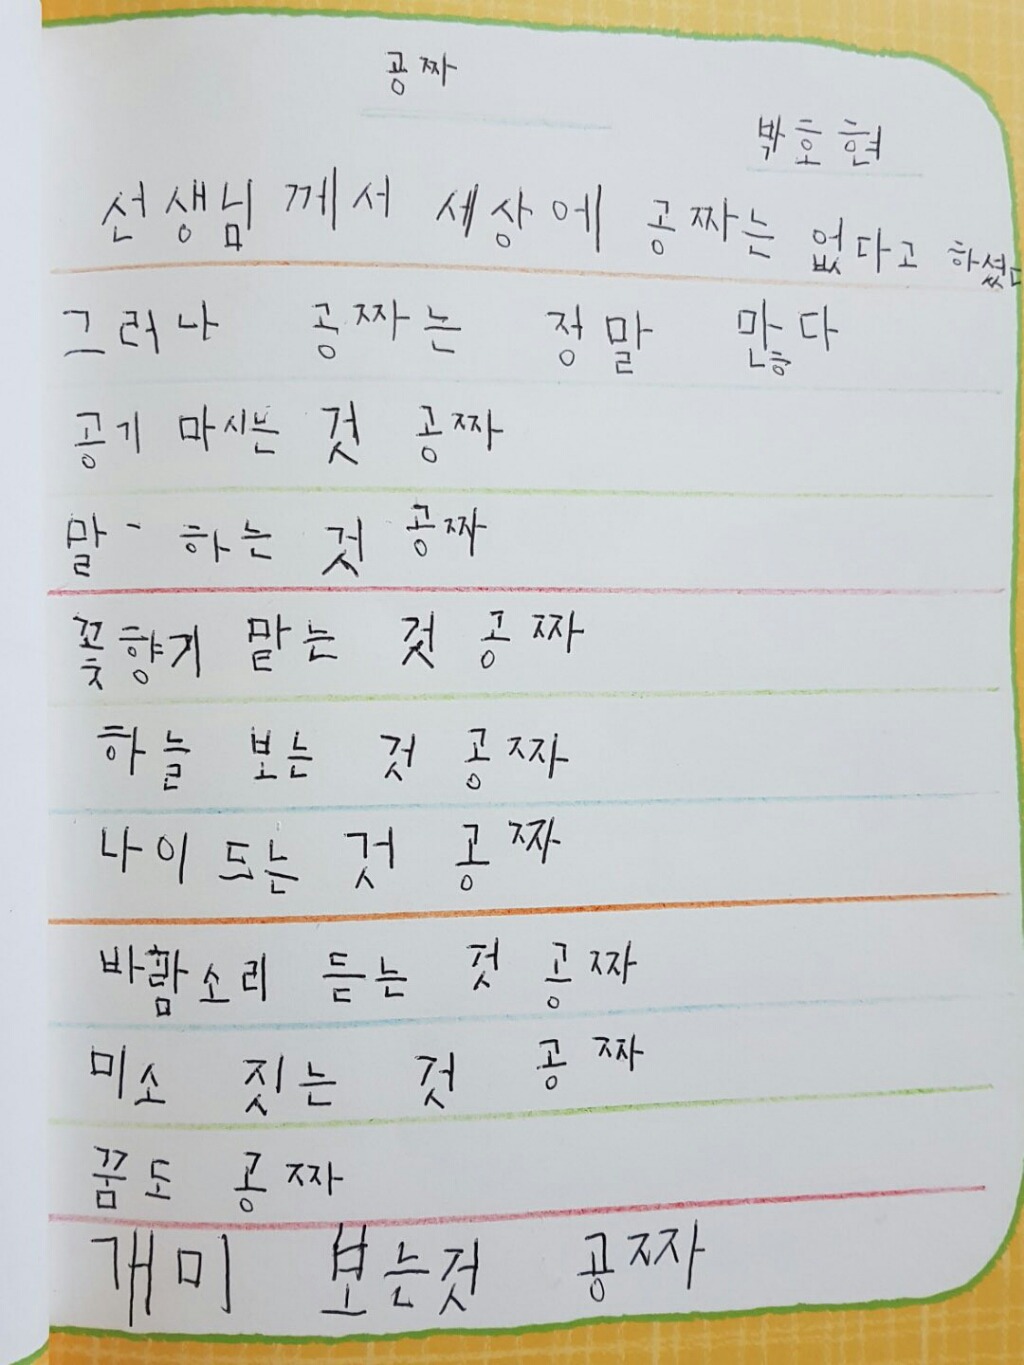 공짜
박호현
선생님께서 세상에 공짜는 없다고 하셨다
그러나 공짜는 정말 많다
공기 마시는 것 공짜
말 - 하는 것 공짜
꽃향기 맡는 것 공짜
하늘 보는 것 공짜
나이 드는 것 공짜
바람소리 듣는 것 공짜
미소 짓는 것 공짜
꿈도 공짜
개미 보는것 공짜